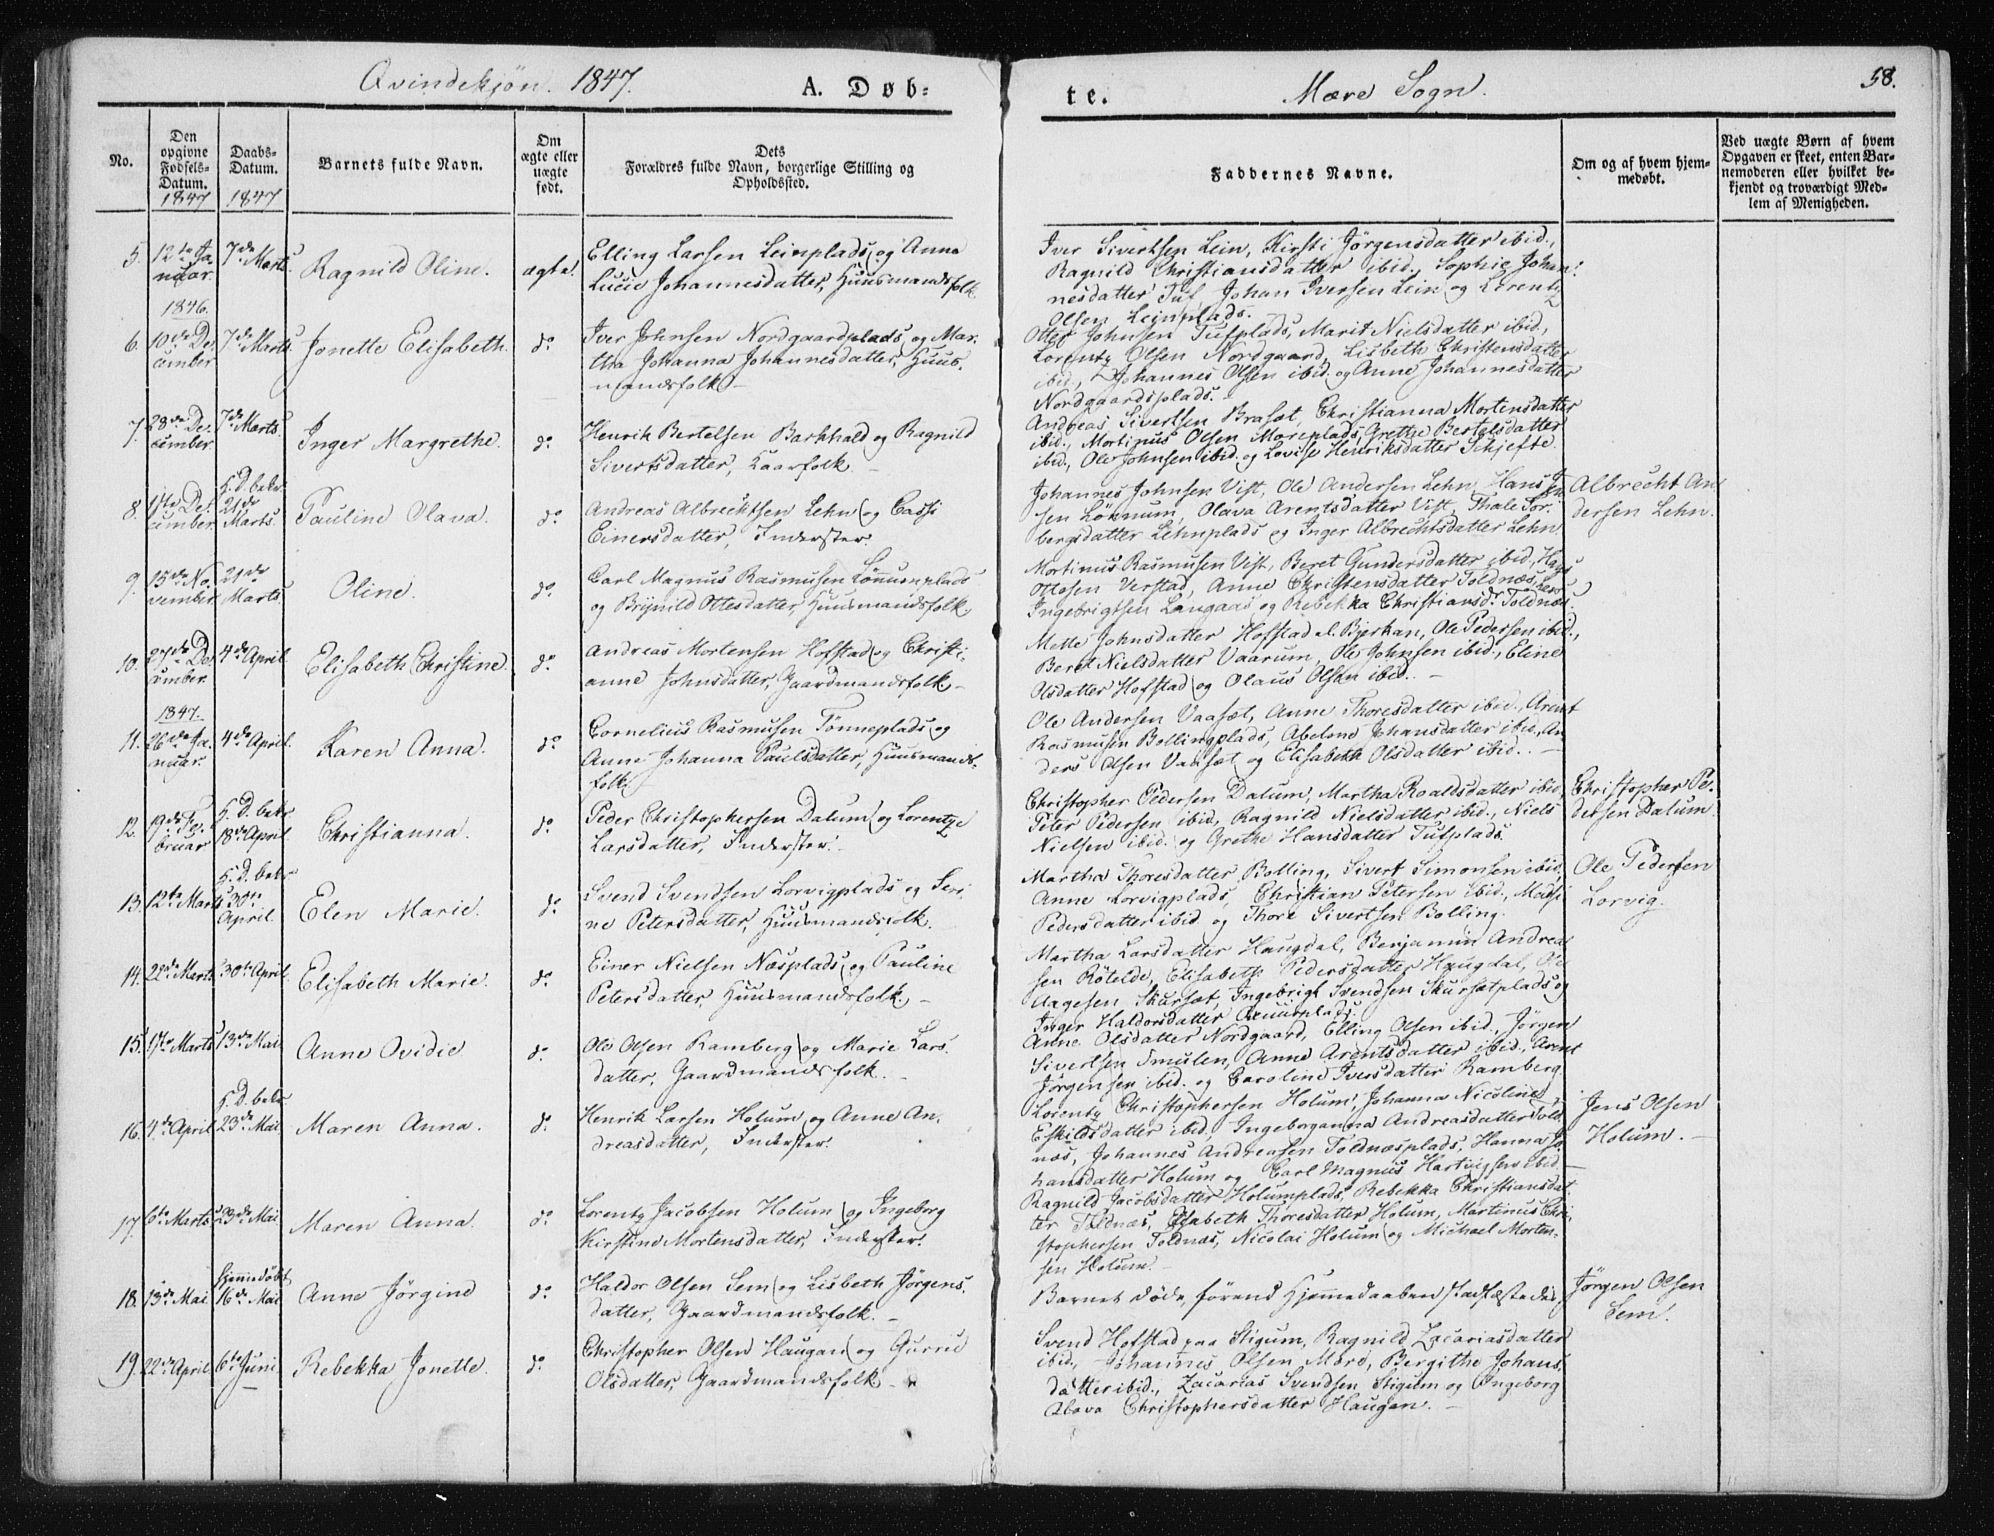 Qvindekjøn. 1847.
A. Døb-
te.
Mære Sogn.
58.
No.
Den opgivne Fødsels-Datum.
1847
Daabs-Datum.
1847
Barnets fulde Navn.
Om ægte eller uægte født.
Dets
Forældres fulde Navn, borgerlige Stilling og
Opholdssted.
Faddernes Navne.
Om og af hvem hjem-
medøbt.
Ved uægte Børn af hvem
Opgaven er skeet, enten Bar-
nemoderen eller hvilket be-
kjendt og troværdigt Med-
lem af Menigheden.
5. 12te Ja-
nuar. 7de Marts. Ragnild Oline. ægte.
Elling Larsen Leinplads og Anne
Lucie Johannesdatter, Huusmandsfolk.
Iver Sivertsen Lein, Kirsti Jørgensdatter ibid.,
Ragnild Christiansdatter ibid., Sophie Johan-
nesdatter Tuf, Johan Iversen Lein og Lorentz
Olsen Leinplads.
1846.
6. 10de De-
cember 7de Marts. Jonette Elisabeth. do
Iver Johnsen Nordgaardplads, og Mar-
tha Johanna Johannesdatter, Huus-
mandsfolk. —
Otter Johnsen Tufplads, Marit Nielsdatter ibid.,
Lorentz Olsen Nordgaard, Lisbeth Christensdatter
ibid., Johannes Olsen ibid. og Anne Johannesdatter
Nordgaardsplads. —
7. 28de De-
cember 7de Marts. Inger Margrethe. do
Henrik Bertelsen Barhhald og Ragnild
Sivertsdatter, Kaarfolk. —
Andreas Sivertsen Braset, Christianna Mortensdatter
ibid., Mortinus Olsen Moreplads, Grethe Bertelsdatter
ibid., Ole Johnsen ibid. og Lovise Henriksdatter Schjefte.
8. 1ste De-
cember H. D. bekr.
21de
Marts. Pauline Olava. do
Andreas Albrechtsen Lehn og Cassi
Einersdatter, Inderster.
Johannes Johnsen Vist, Ole Andersen Lehn, Hans
sen Lønnum, Olava Arentsdatter Vist, Thale Tor-
bergsdatter Lehnplads og Inger Albrechtsdatter Lehn.
Albrecht An-
dersen Lehn.
9. 15de No-
vember 21de
Marts. Oline. do
Carl Magnus Rasmusen Lønnumplads
og Brynild Ottesdatter, Huusmandsfolk.
Mortinus Rasmusen Vist, Beret Gundersdatter ibid., Hans
Ottosen Verstad, Anne Christensdatter Toldnæs,
Ingebrigtsen Langaas og Rebekka Christiansdr Toldnæs.
10. 27de De-
cember. 4de April. Elisabeth Christine. do
Andreas Mortensen Hofstad og Christi-
anne Johnsdatter, Gaardmandsfolk. —
Mette Johnsdatter Hofstad el. Bjerkan, Ole Pedersen ibid.,
Beret Nielsdatter Vaarum, Ole Johnsen ibid., Eline
Olsdatter Hofstad og Olaus Olsen ibid. —
1847.
11. 26de Ja-
nuar. 4de April. Karen Anna. do
Cornelius Rasmusen Tønneplads og
Anne Johanna Paulsdatter, Huusmands-
folk.
Ole Andersen Vaasæt, Anne Thoresdatter ibid., Arent
Rasmusen Bollingplads, Abelone Johansdatter ibid., An-
ders Olsen Vaasæt og Elisabeth Olsdatter ibid. —
12. 19de Fe-
bruar H. D. bekr.
18de April Christianna. do
Peder Christophersen Dalum og Lorentze
Larsdatter, Inderster.
Christopher Pedersen Dalum, Martha Roaldsdatter ibid.
Peter Pedersen ibid., Ragnild Nielsdatter ibid., Niels
Nielsen ibid. og Grethe Hansdatter Tufplads.
Christopher Pe-
dersen Dalum.
13. 12te Marts H. D. bekr.
30te
April. Elen Marie. do
Svend Svendsen Lorvigplads og Seri-
ne Petersdatter, Huusmandsfolk.
Martha Thoresdatter Bolling, Sivert Simonsen ibid.,
Anne Lorvigplads, Christian Petersen ibid., Madsi
Pedersdatter ibid og Thore Sivertsen Bolling.
Ole Pedersen
Lorvig.
14. 22de Marts 30te April. Elisabeth Marie. do
Einer Nielsen Næsplads og Pauline
Petersdatter, Huusmandsfolk. —
Martha Larsdatter Haugdal, Benjamin Andrea-
sen Rötelde, Elisabeth Pedersdatter Haugdal, Ole
Aagesen Skursæt, Ingebrigt Svendsen Skursætplads og
Inger Haldorsdatter
15. 17te Marts 13de Mai. Anne Ovidie. do
Ole Olsen Ramberg og Marie Lars-
datter, Gaardmandsfolk. —
Anne Olsdatter Nordgaard, Elling Olsen ibid., Jørgen
Sivertsen Smulen, Anne Arentsdatter ibid., Arent
Jørgensen ibid. og Caroline Iversdatter Ramberg.
16. 4de April H. D. bekr.
23de Mai Maren Anna. do
Henrik Larsen Holum og Anne An-
dreasdatter, Inderster.
Lorentz Christophersen Holum, Johanna Nicoline
Eskildsdatter ibid., Ingeborganna Andreasdatter Told-
næs, Johannes Andreasen Toldnæsplads, Hanna Jo-
hansdatter Holum og Carl Magnus Hartvigsen ibid. —
Jens Olsen
Holum. —
17. 6te Marts 23de Mai Maren Anna. do
Lorentz Jacobsen Holum og Ingeborg
Kirstine Mortensdatter, Inderster.
Ragnild Jacobsdatter Holumplads, Rebekka Christiansdat-
ter Toldnæs, Elsabeth Thoresdatter Holum, Martinus Chri-
stophersen Toldnæs, Nicolai Holum og Michael Morten-
sen Holum. —
18. 13de Mai hjemmedøbt
16de Mai Anne Jørgine do
Haldor Olsen Sem og Lisbeth Jørgens-
datter, Gaardmandsfolk. —
Barnet døde, førend Hjemmedaaben stadfæstedes.
Jørgen Olsen
Sem.
19. 22de April 6te Juni Rebekka Jonette. do
Christopher Olsen Haugan og Gurrue
Olsdatter, Gaardmandsfolk. —
Svend Hofstad paa Stigum, Ragnild Zacariasdatter
ibid., Johannes Olsen Mære, Bergithe Johans-
datter ibid., Zacarias Svendsen Stigum og Ingeborg
Olava Christophersdatter Haugan. —